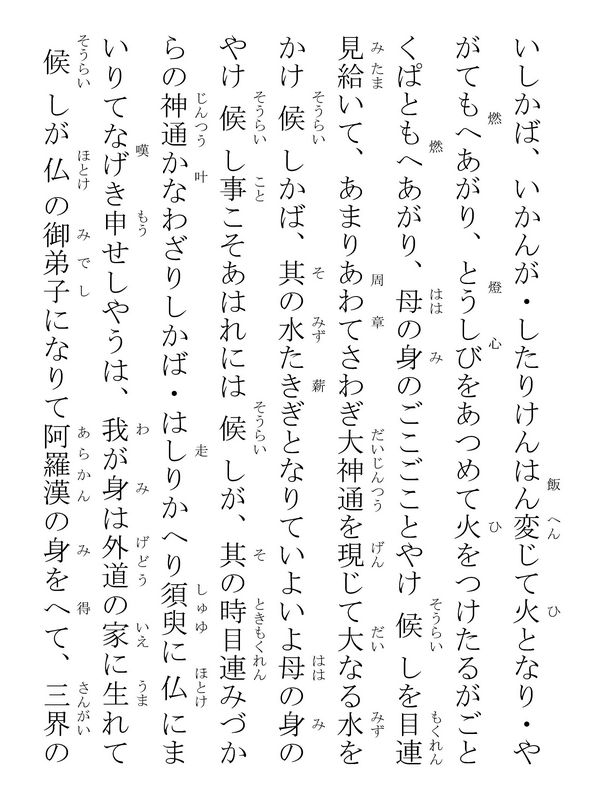 いしかば、いかんが・したりけんはん変じて火となり・や
がてもへあがり、とうしびをあつめて火をつけたるがごと
くぱともへあがり、母の身のごこごことやけ候しを目連
見給いて、あまりあわてさわぎ大神通を現じて大なる水を
かけ候しかば、其の水たきぎとなりていよいよ母の身の
やけ候し事こそあはれには候しが、其の時目連みづか
らの神通かなわざりしかば・はしりかへり須臾に仏にま
いりてなげき申せしやうは、我が身は外道の家に生れて
候しが仏の御弟子になりて阿羅漢の身をへて、三界の